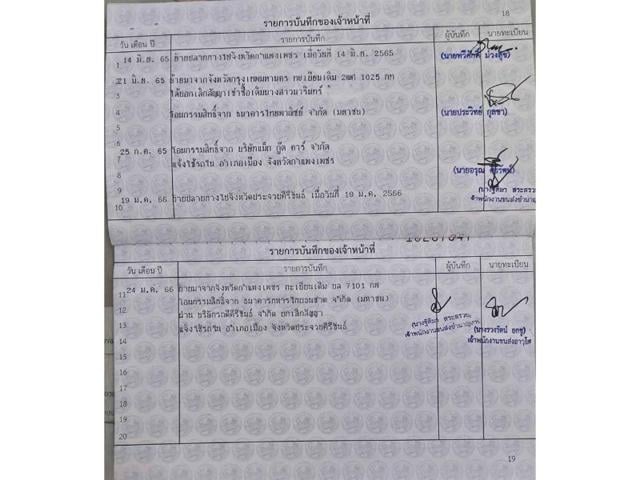 18
รายการบันทึกของเจ้าหน้าที่
วัน เดือน ปี รายการบันทึก ผู้บันทึก นายทะเบียน
1 14 มิ.ย. 65 ย้ายปลายทางไปจังหวัดกำแพงเพชร เมื่อวันที่ 14 มิ.ย. 2565
(นายทวีศักดิ์ ม่วงสุข)
21 มิ.ย. 65 ย้ายมาจากจังหวัดกรุงเทพมหานคร ทะเบียนเดิม 1025 กท
ได้ยกเลิกสัญญาเช่าซื้อเดิม
4 โอนกรรมสิทธิ์จาก ธนาคารไทยพาณิชย์ จำกัด (มหาชน) (นายประวิทย์ กุลชา)
25 ก.ค. 65 โอนกรรมสิทธิ์จาก บริษัทแม็ก กู๊ด คาร์ จำกัด
แจ้งใช้รถใน อำเภอเมือง จังหวัดกำแพงเพชร
(นายอรุณ
9 19 ม.ค. 66 ย้ายปลายทางไปจังหวัดประจวบคีรีขันธ์ เมื่อวันที่ 19 ม.ค. 2566
10
เจ้าพนักงานขนส่ง
รายการบันทึกของเจ้าหน้าที่
วัน เดือน ปี รายการบันทึก ผู้บันทึก นายทะเบียน
11 24 ม.ค. 66 ย้ายมาจากจังหวัดกำแพงเพชร ทะเบียนเดิม ผล 7101 กพ
12 โอนกรรมสิทธิ์จาก ธนาคารทหารไทยธนชาต จำกัด (มหาชน)
13 ผ่าน บริษัทรถดีคีรีขันธ์ จำกัด ยกเลิกสัญญา
14 แจ้งใช้รถใน อำเภอเมือง จังหวัดประจวบคีรีขันธ์
(นางรวงรัตน์ ยกชู)
15
16
17
18
19
20
19